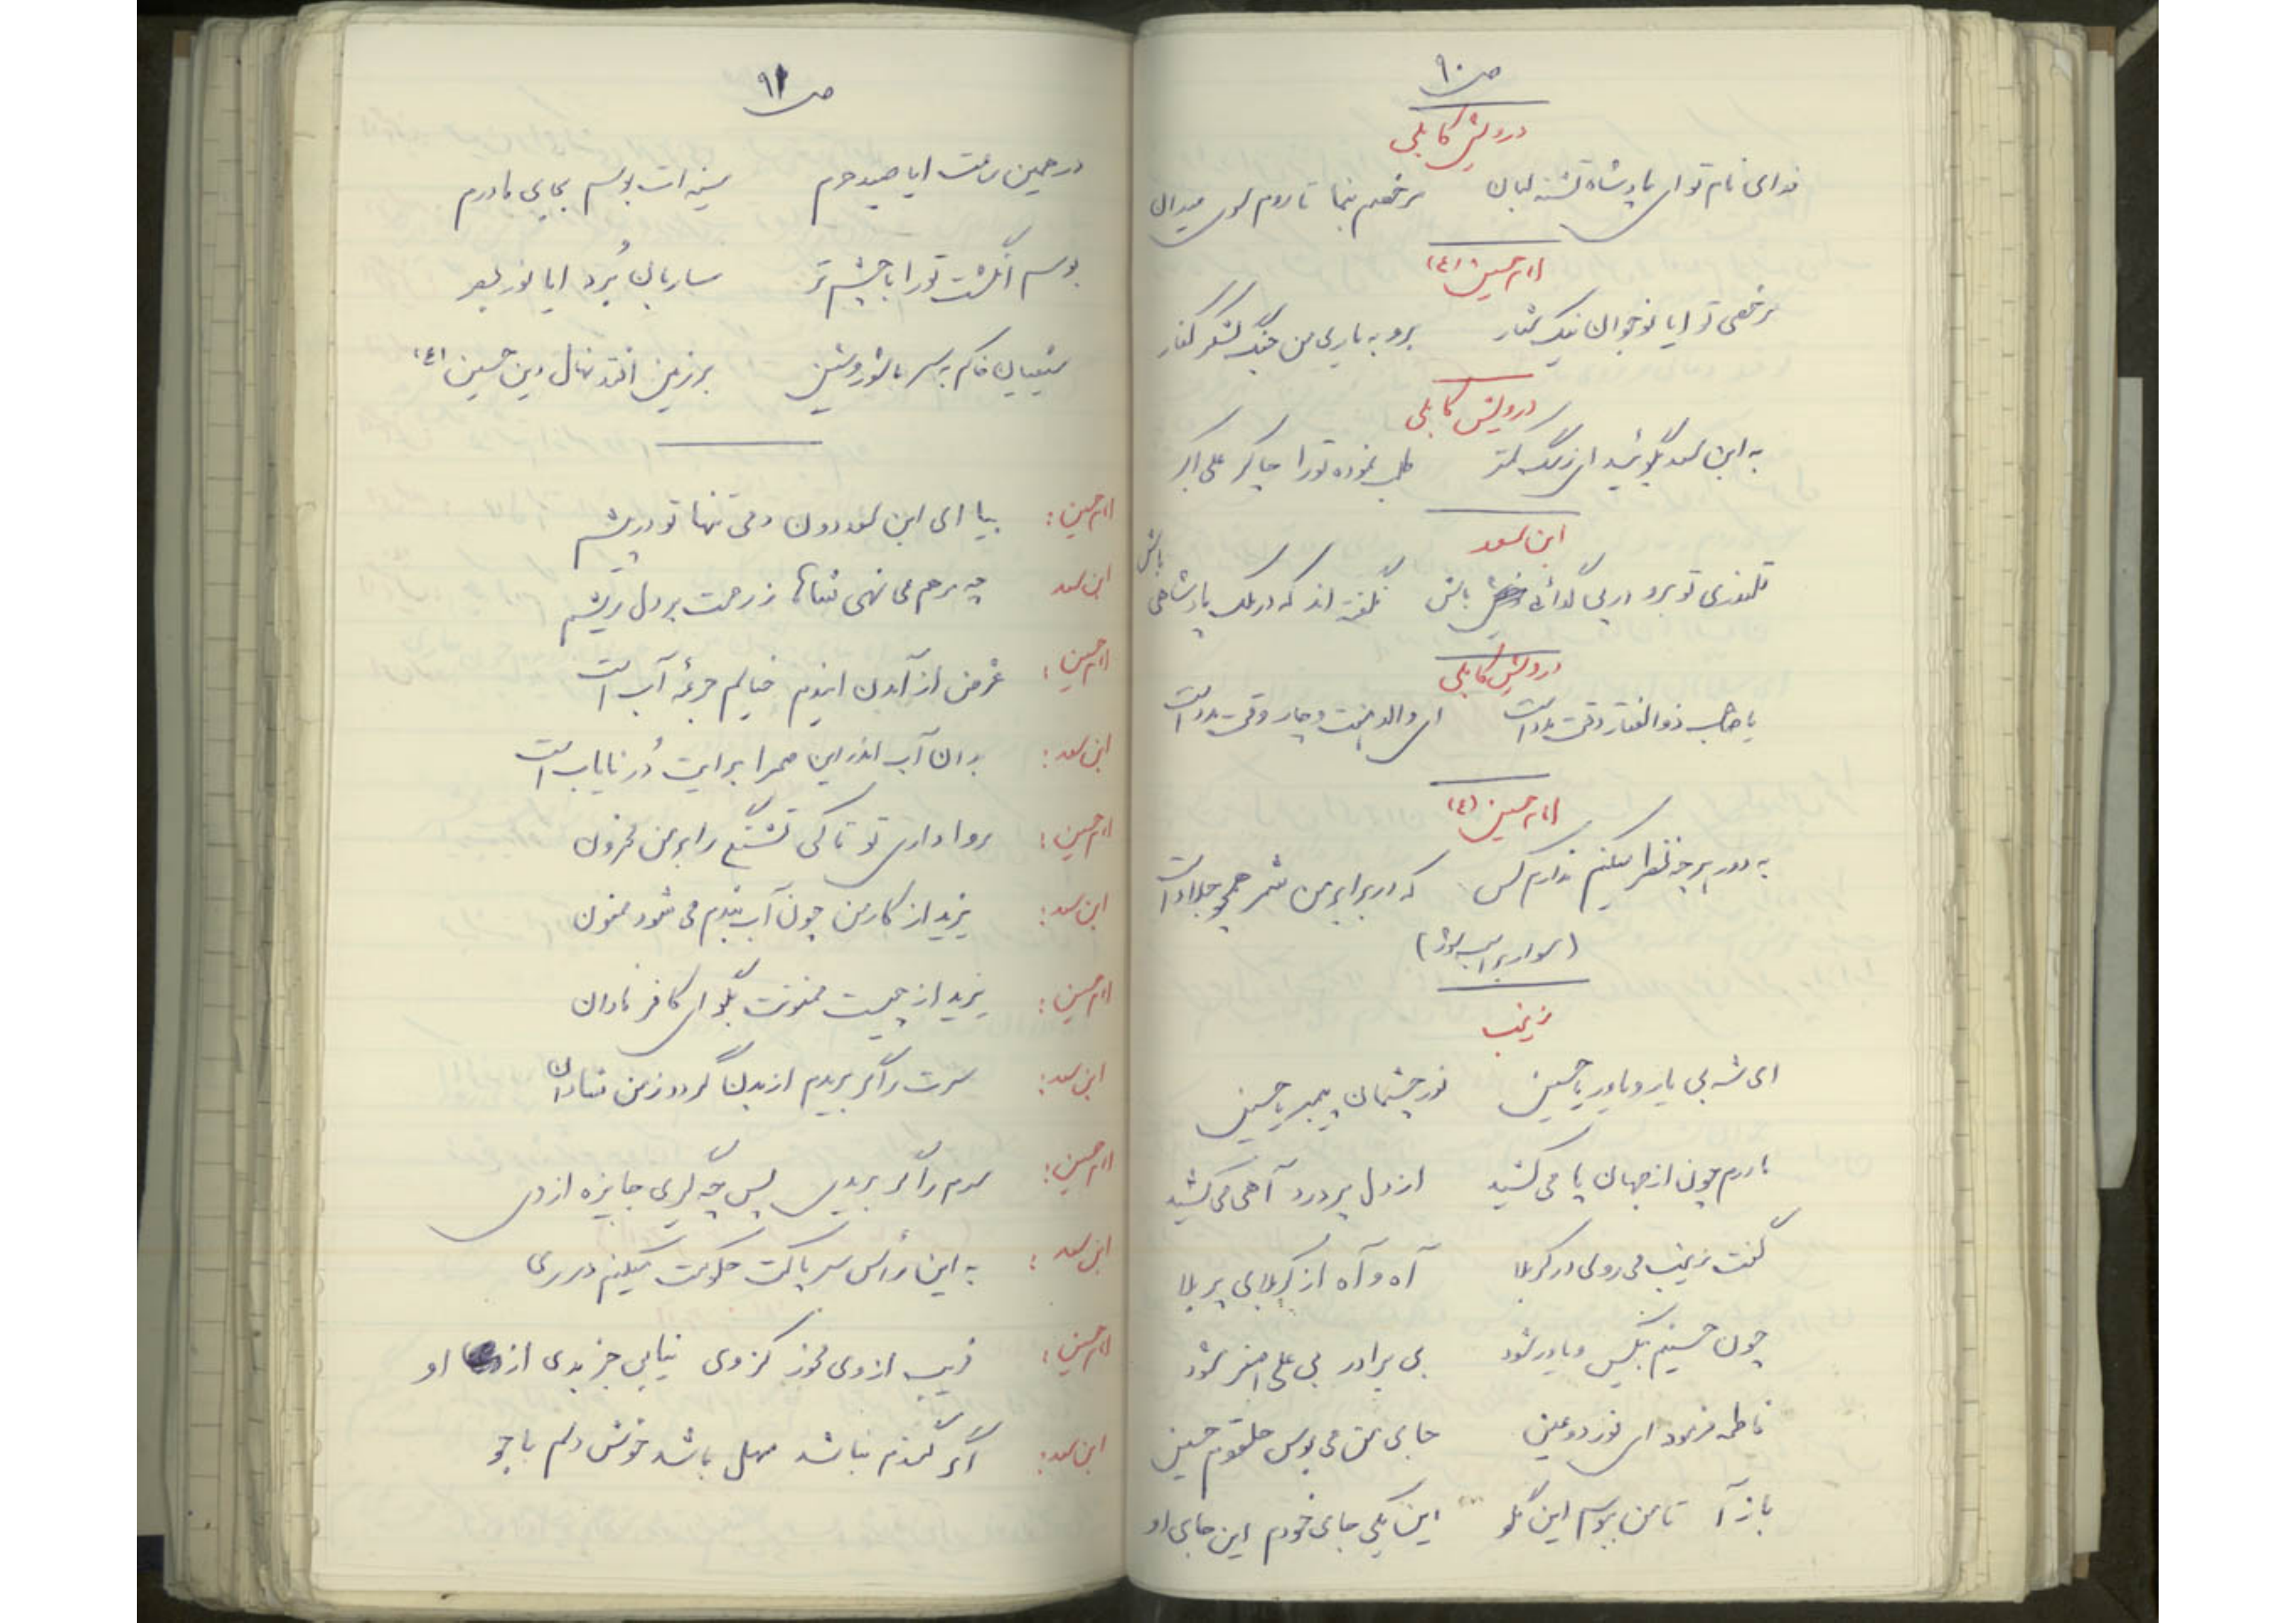 ص ۹۰
درویش کابلی
فدای نام تو ای پادشاه تشنه لبان مرخصم بنما تا روم سوی میدان
امام حسین (ع)
مرخصی تو ایا نوجوان نیک شعار برو به یاری من جنگ لشکر کفار
درویش کابلی
به ابن سعد بگوئید ای ز سگ کمتر طلب نموده تو را چاکر علی اکبر
ابن سعد
قلندری تو برو در پی گدائی باش نگفته اند که در ملک پادشاهی باش
درویش کابلی
یا صاحب ذوالفقار وقت مدد است ای والد هشت و چار وقت مدد است
امام حسین (ع)
به دور هرچه نظر میکنم ندارم کس که در برابر من شمر همچو جلاد است
(سوار بر اسب شود)
زینب
ای شه بی یار و یاور یا حسین نور چشمان پیمبر یا حسین
مادرم چون از جهان پا می کشید از دل پر درد آهی می کشید
گفت زینب می روی در کربلا آه و آه از کربلای پر بلا
چون حسینم بیکس و یاور شود بی برادر بی علی اصغر شود
فاطمه فرمود ای نور دو عین جای من می بوس حلقوم حسین
باز آ تا من ببوسم این گلو این یکی جای خودم این جای او
ص ۹۱
در حین رفتنت ایا صید حرم سینه ات بوسم بجای مادرم
بوسم انگشت تو را با چشم تر ساربان بُرد ایا نور بصر
شیعیان خاکم به سر با شور و شین بر زمین افتد نهال دین حسین (ع)
امام حسین: بیا ای ابن سعد دون دمی تنها تو در پیشم
ابن سعد چه مرهم می نهی شاها ز رحمت بر دل ریشم
امام حسین: غرض از آمدن ایندم خیالم جرعهٔ آب است
ابن سعد: بدان آب اندر این صحرا برایت دُر نایاب است
امام حسین: روا داری تو تا کی تشنگی را بر من محزون
ابن سعد: یزید از کار من چون آب بندم می شود ممنون
امام حسین: یزید از چیست ممنونت بگو ای کافر نادان
ابن سعد: سرت را گر بریدم از بدن گردد ز من شادان
امام حسین: سرم را گر بریدی پس چه گیری جایزه از وی
ابن سعد: به این رأس سر پاکت حکومت میکنم در ری
امام حسین: فریب از وی مخور کز وی نیابی جز بدی از او
ابن سعد: اگر گندم نباشد سهل باشد خوش دلم با جو